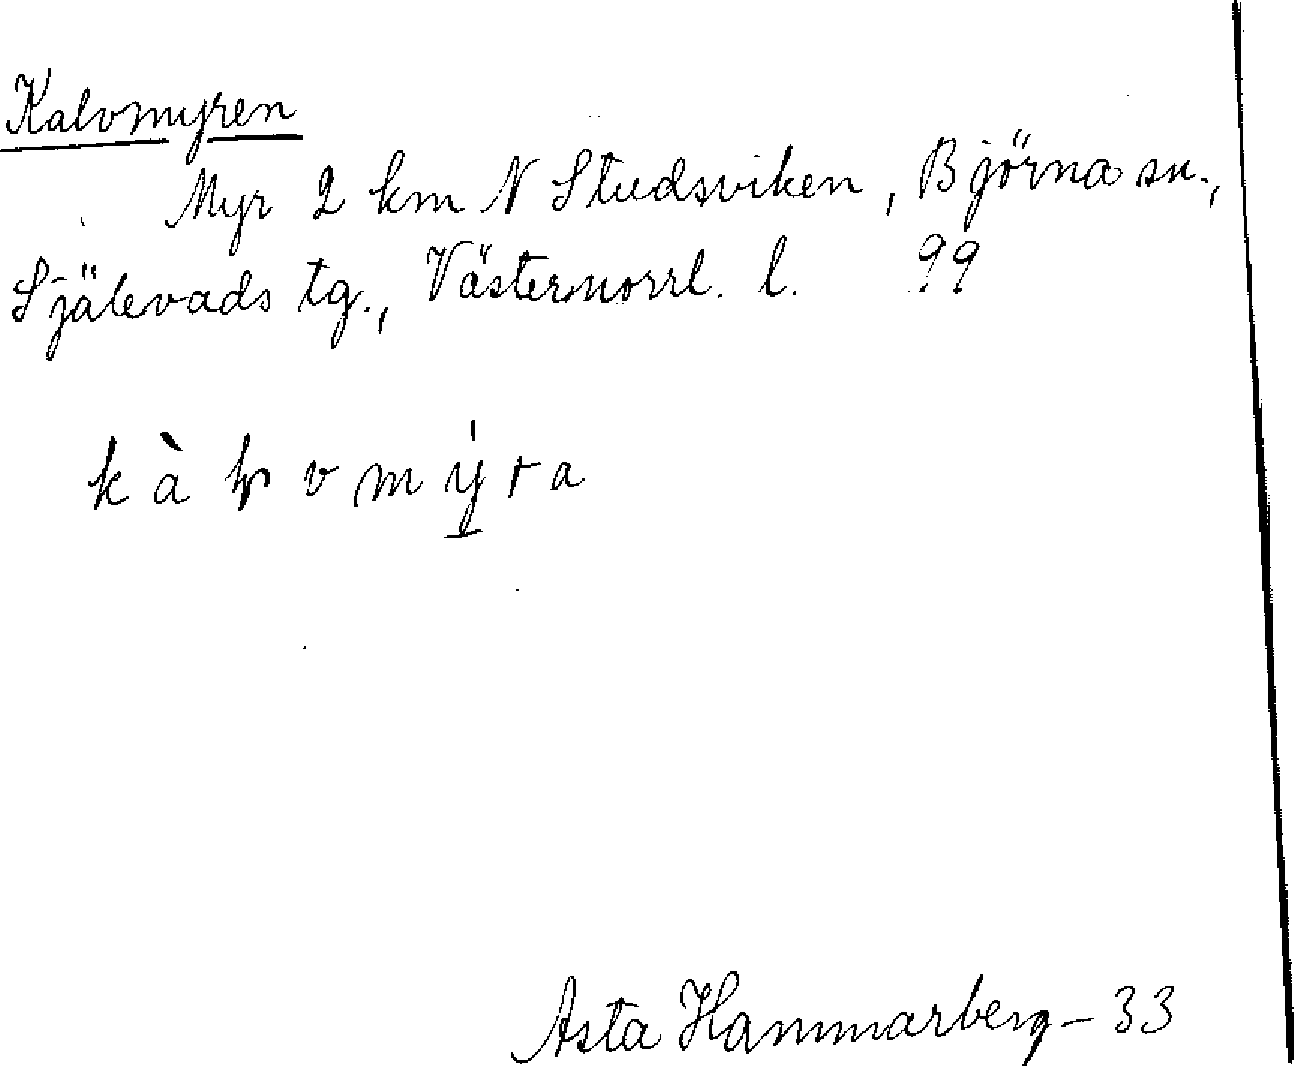 Kalvmyren
Myr 2 km N Studsviken, Björna sn.,
Själevads tg., Västernorrl. l. 99
Asta Hammarberg - 33